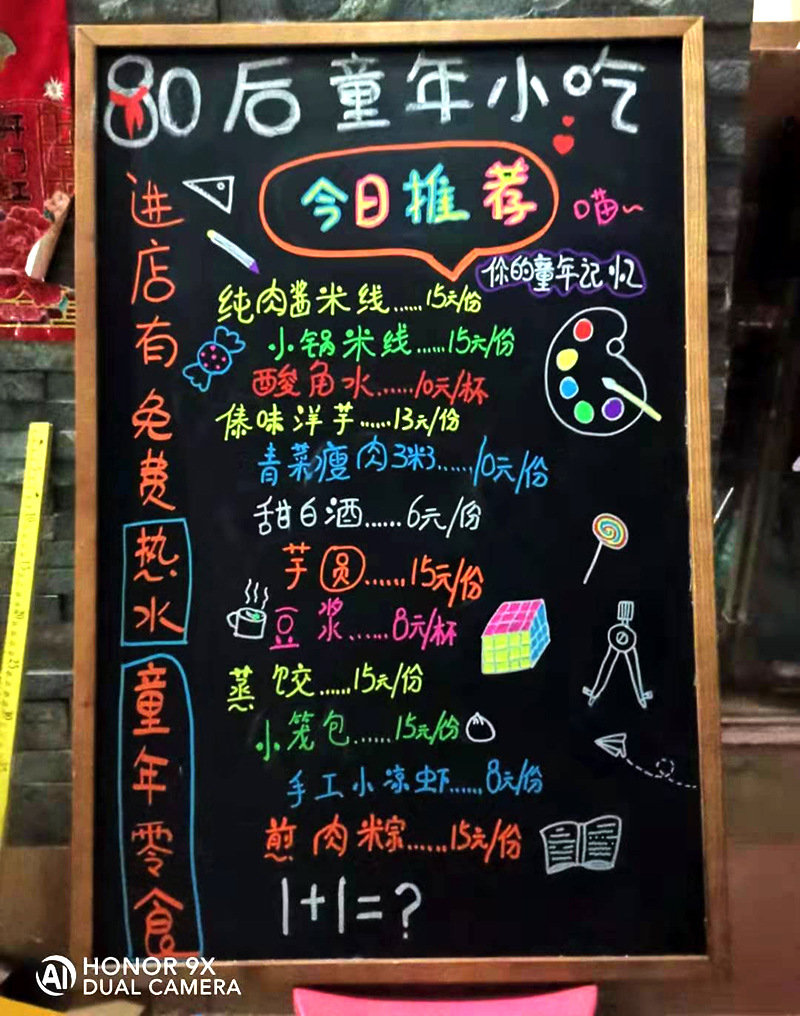 80后童年小吃
今日推荐
喵~
你的童年记忆
进店有免费热水
童年零食
纯肉酱米线......15元/份
小锅米线......15元/份
酸角水......10元/杯
傣味洋芋......13元/份
青菜瘦肉3米3......10元/份
甜白酒......6元/份
芋圆......15元/份
豆浆......8元/杯
蒸饺......15元/份
小笼包......15元/份
手工小凉虾......8元/份
煎肉粽......15元/份
1+1=?
HONOR 9X
DUAL CAMERA